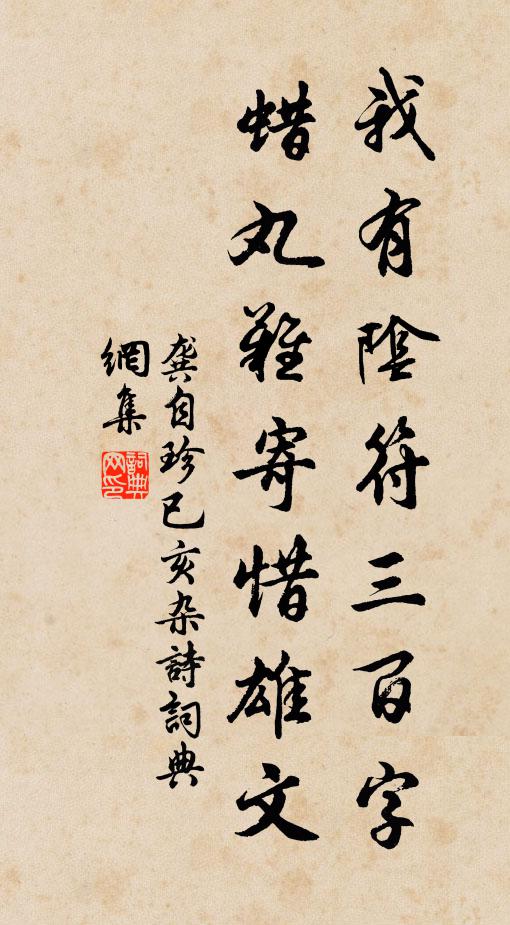 我有陰符三百字
蜡丸難寄惜雄文
龔自珍己亥杂詩詞典
網集
詞典
网印